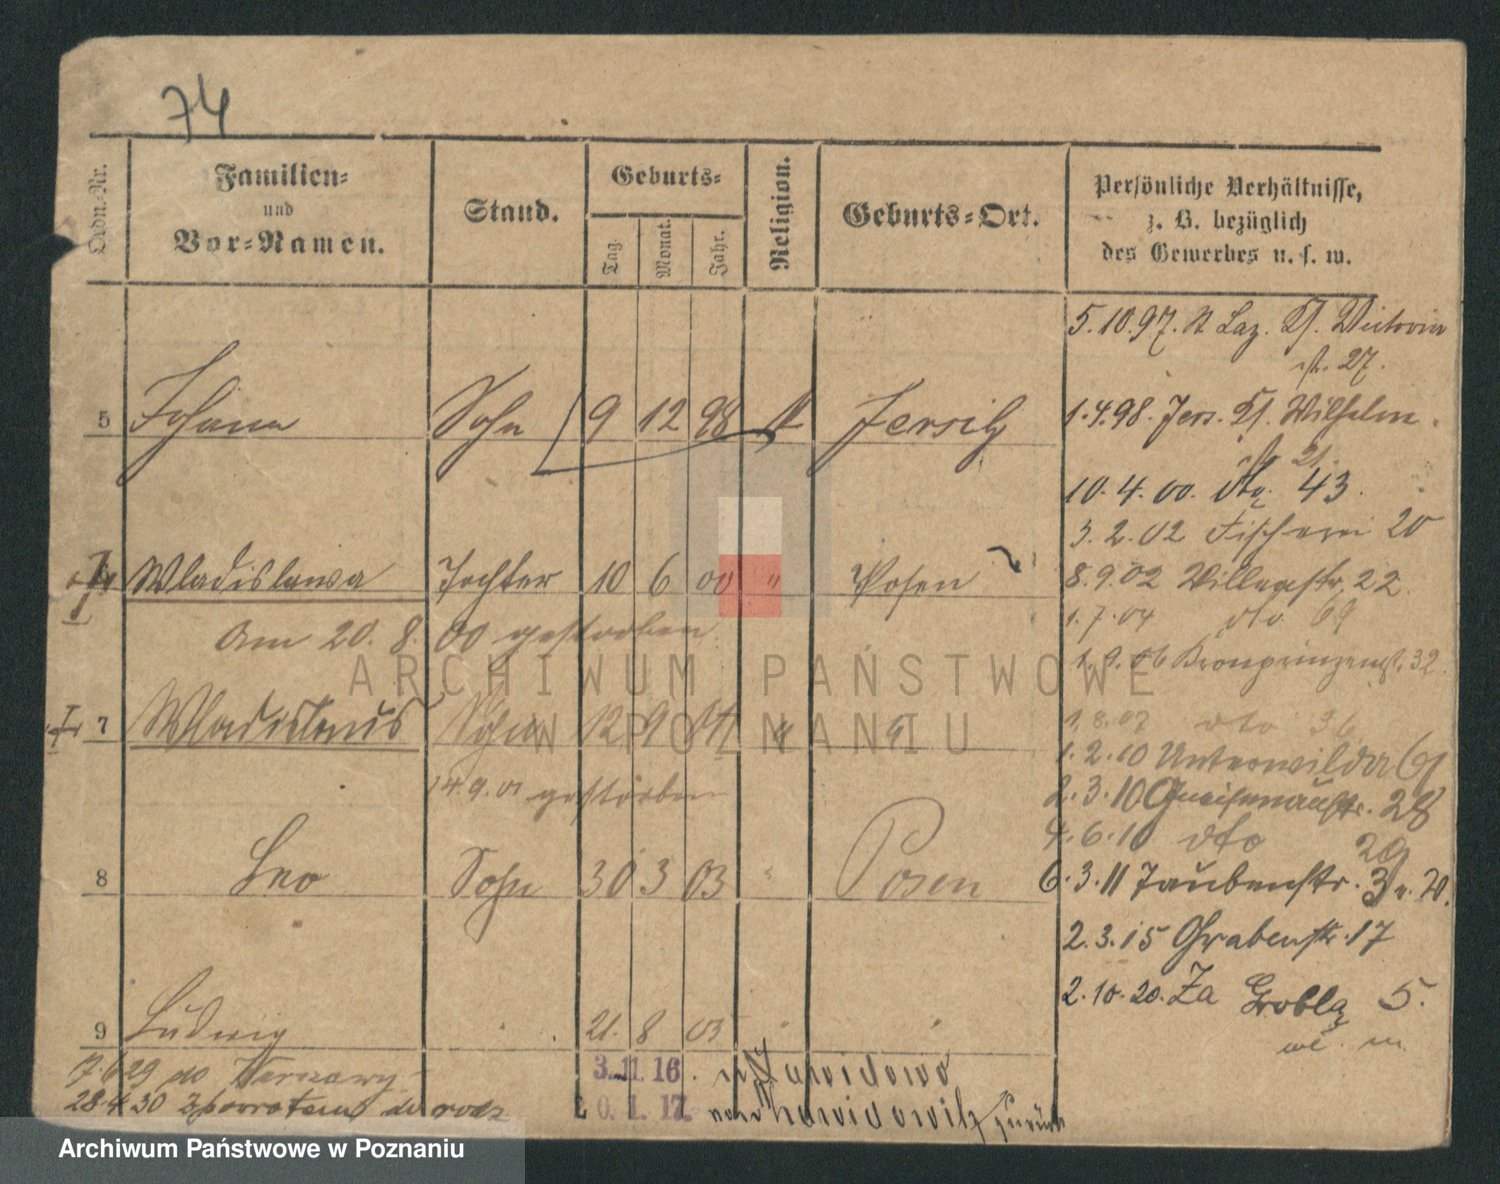 74
Ordn.-Nr.
Familien-
und
Vor-Namen.
Stand.
Geburts-
Tag.
Monat.
Jahr.
Religion.
Geburts-Ort.
Persönliche Verhältnisse,
z. B. bezüglich
des Gewerbes u. s. w.
5.10.97. St Laz. Victoria
str. 27.
5 Johann Sohn 9 12 98 k Jersitz
1.4.98. Jers. Wilhelm
str 21.
10.4.00. dto. 43.
3.2.02 Fischerei 20
Wladislawa Tochter 10 6 00 " Posen
8.9.02 Villenstr. 22.
Am 20.8.00 gestorben.
1.7.04 dto 69
1.9.06 Kronprinzenst. 32.
7 Wladislaus Sohn 12 9 01 "
1.8.07 dto 36.
1.2.10 Unterwilda 61
14.9.01 gestorben
2.3.10 Gneisenaustr. 28
4.6.10 dto 29
8 Leo Sohn 30 3 03 " Posen
6.3.11 Taubenstr. 3
2.3.15 Grabenstr. 17
2.10.20. Za Groblą 5.
9 Ludwig " 21. 8 05 " "
7.6.29 do Warszawy
3.11.16. n. Zawidowo
28.4.30 z powrotem do rodz
20.1.17. von zurück
ARCHIWUM PAŃSTWOWE
W POZNANIU
Archiwum Państwowe w Poznaniu